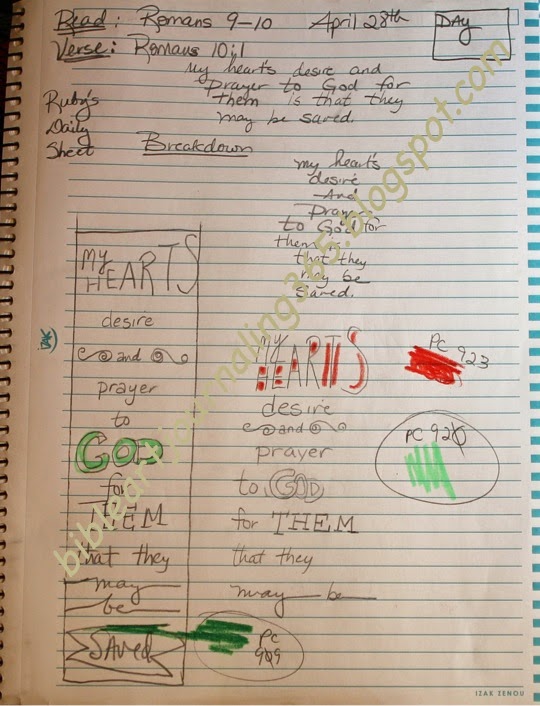 Read: Romans 9-10 April 28th
DAY
Verse: Romans 10:1
My heart's desire and
prayer to God for
them is that they
may be saved.
Ruby's
Daily
Sheet
Breakdown
my heart's
desire
And
Prayer
to God for
them is
that they
may be
saved.
My
HEARTS
desire
and
prayer
to
GOD
for
THEM
that they
may
be
SAved
My
HEARTS
desire
and
prayer
to GOD
for THEM
that they
may be
PC 923
PC 920
PC
909
bibleartjournaling365.blogspot.com
IZAK ZENOU